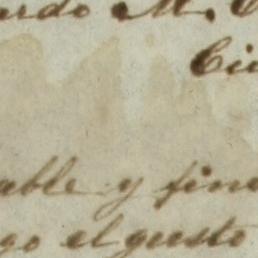 ardo M. C
Ciu
able y fine
go el gusto